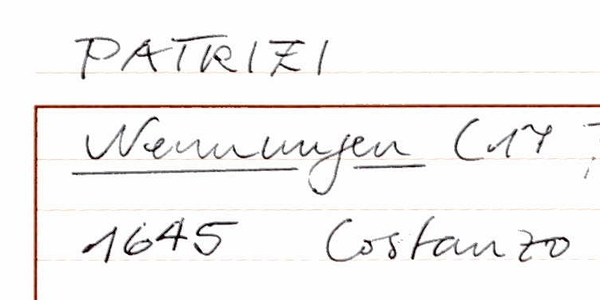 PATRIZI
Nennungen (17
1645 Costanzo